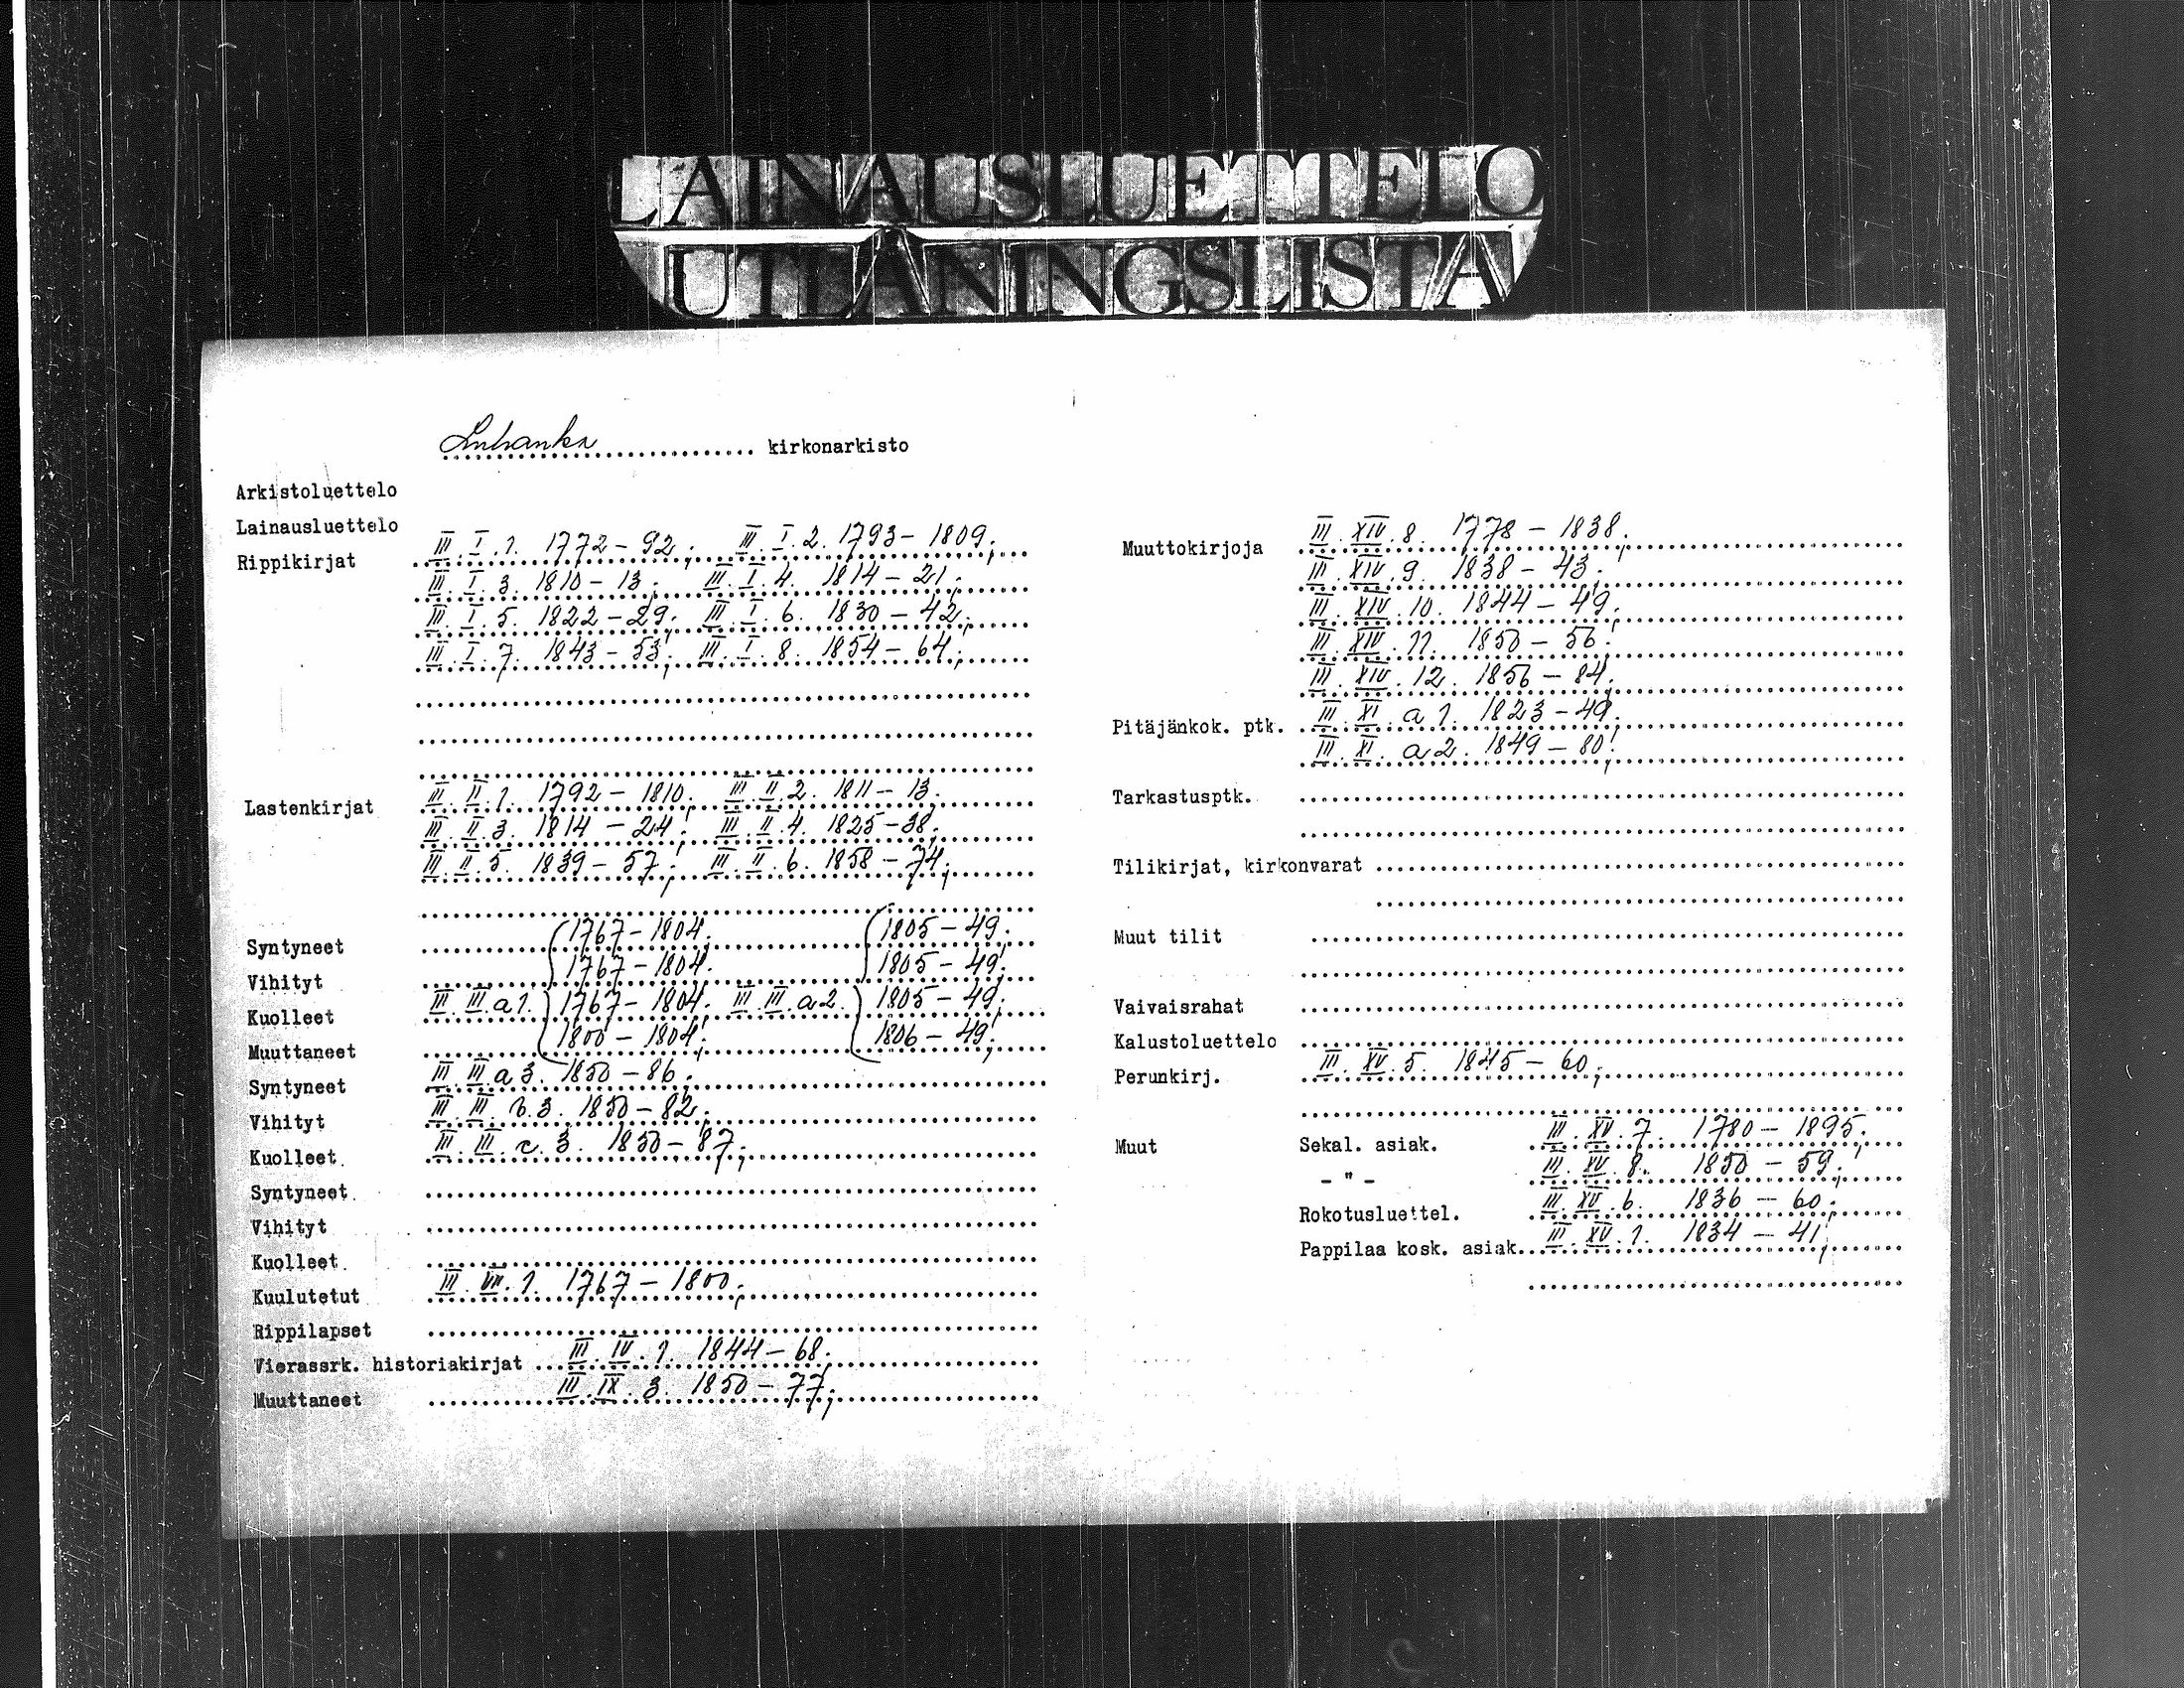 LAINAUSLUETTELO
UTLÅNINGSLISTA
Luhanka kirkonarkisto
Arkistoluettelo
Lainausluettelo
Rippikirjat III. I. 1. 1772 – 92; III. I. 2. 1793 – 1809;
III. I. 3. 1810 – 13; III. I. 4. 1814 – 21;
III. I. 5. 1822 – 29; III. I. 6. 1830 – 42;
III. I. 7. 1843 – 53; III. I. 8. 1854 – 64;
Lastenkirjat III. II. 1. 1792 – 1810; III. II. 2. 1811 – 13;
III. II. 3. 1814 – 24; III. II. 4. 1825 – 38;
III. II. 5. 1839 – 57; III. II. 6. 1858 – 74;
Syntyneet 1767 – 1804; 1805 – 49;
Vihityt 1767 – 1804; 1805 – 49;
Kuolleet III. III. a 1. 1767 – 1804; III. III. a 2. 1805 – 49;
Muuttaneet 1800 – 1804; 1806 – 49;
Syntyneet III. III. a 3. 1850 – 86;
Vihityt III. III. b. 3. 1850 – 82;
Kuolleet III. III. c. 3. 1850 – 87;
Syntyneet
Vihityt
Kuolleet
Kuulutetut III. VII. 1. 1767 – 1800;
Rippilapset
Vierassrk. historiakirjat III. IV. 1. 1844 – 68;
Muuttaneet III. IX. 3. 1850 – 77;
Muuttokirjoja III. XIV. 8. 1778 – 1838;
III. XIV. 9. 1838 – 43;
III. XIV. 10. 1844 – 49;
III. XIV. 11. 1850 – 56;
III. XIV. 12. 1856 – 84;
Pitäjänkok. ptk. III. XI. a 1. 1823 – 49;
III. XI. a 2. 1849 – 80;
Tarkastusptk.
Tilikirjat, kirkonvarat
Muut tilit
Vaivaisrahat
Kalustoluettelo
Perunkirj. III. XV. 5. 1845 – 60;
Muut Sekal. asiak. III. XV. 7. 1780 – 1895;
– " – III. XV. 8. 1850 – 59;
Rokotusluettel. III. XV. 6. 1836 – 60;
Pappilaa kosk. asiak. III. XV. 1. 1834 – 41;